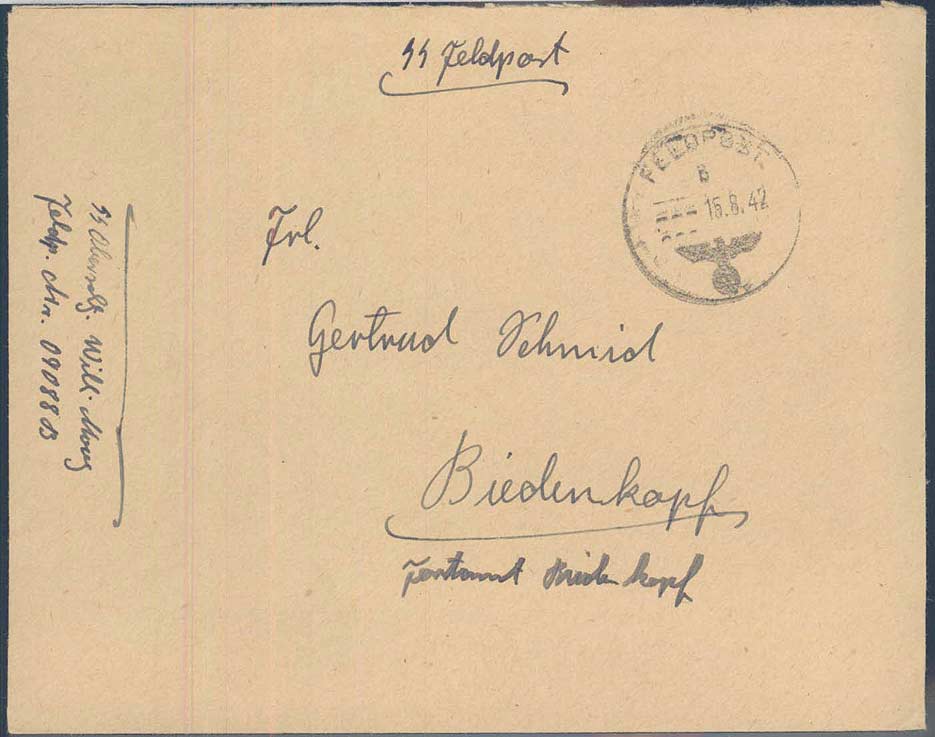 SS Feldpost
FELDPOST
B
15.8.42
Frl.
Gertrud Schmid
Biedenkopf
Forstamt Biedenkopf
SS Will.
Feldp. Nr. 09088 B